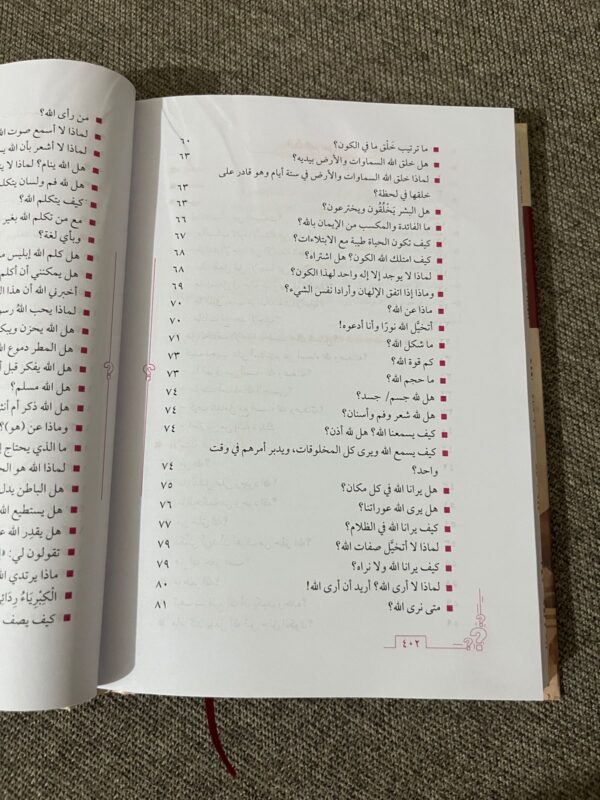 ما ترتيب خَلْق ما في الكون؟ ٦٠
هل خلق الله السماوات والأرض بيديه؟ ٦٣
لماذا خلق الله السماوات والأرض في ستة أيام وهو قادر على
خلقها في لحظة؟ ٦٣
هل البشر يَخْلُقُون ويخترعون؟ ٦٣
ما الفائدة والمكسب من الإيمان بالله؟ ٦٦
كيف تكون الحياة طيبة مع الابتلاءات؟ ٦٧
كيف امتلك الله الكون؟ هل اشتراه؟ ٦٨
لماذا لا يوجد إلا إله واحد لهذا الكون؟ ٦٨
وماذا إذا اتفق الإلهان وأرادا نفس الشيء؟ ٦٩
ماذا عن الله؟ ٧٠
أتخيَّل الله نورًا وأنا أدعوه! ٧٠
ما شكل الله؟ ٧١
كم قوة الله؟ ٧٣
ما حجم الله؟ ٧٣
هل لله جسم/ جسد؟ ٧٤
هل لله شعر وفم وأسنان؟ ٧٤
كيف يسمعنا الله؟ هل لله أذن؟ ٧٤
كيف يسمع الله ويرى كل المخلوقات، ويدبر أمرهم في وقت
واحد؟ ٧٤
هل يرانا الله في كل مكان؟ ٧٥
هل يرى الله عوراتنا؟ ٧٦
كيف يرانا الله في الظلام؟ ٧٧
لماذا لا أتخيَّل صفات الله؟ ٧٩
كيف يرانا الله ولا نراه؟ ٧٩
لماذا لا أرى الله؟ أريد أن أرى الله! ٨٠
متى نرى الله؟ ٨١
٤٠٢
من رأى الله؟
لماذا لا أسمع صوت
لماذا لا أشعر بأن الله
هل الله ينام؟ لماذا لا
هل لله فم ولسان
كيف يتكلم الله؟
مع من تكلم الله بغير
وبأي لغة؟
هل كلم الله إبليس
هل يمكنني أن أكلم
أخبري الله أن هذا
لماذا يحب اللهُ
هل الله يحزن
هل المطر دموع
هل الله يفكر قبل
هل الله مسلم؟
هل الله ذكر أم
وماذا عن (هو)؟
ما الذي يحتاج
لماذا الله هو
هل الباطن يدل
هل يستطيع
هل يقدِر
تقولون لي:
ماذا يرتدي
الْكِبْرِيَاءُ
كيف يصف